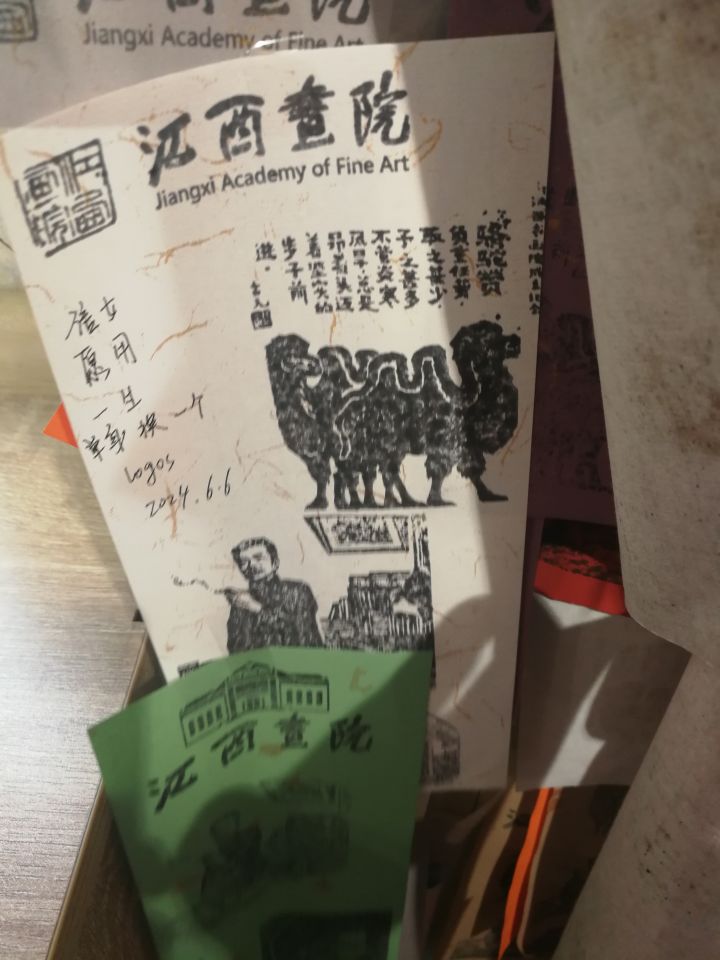 Jiangxi Academy of Fine Art
江西画院
Jiangxi Academy of Fine Art
骆驼赞
负重任劳
取之甚少
予之甚多
不管炎寒
风旱总是
昂着头迈
着坚实的
步子前
进。
信女
愿用
一生
单身换一个
logos
2024.6.6
江西画院